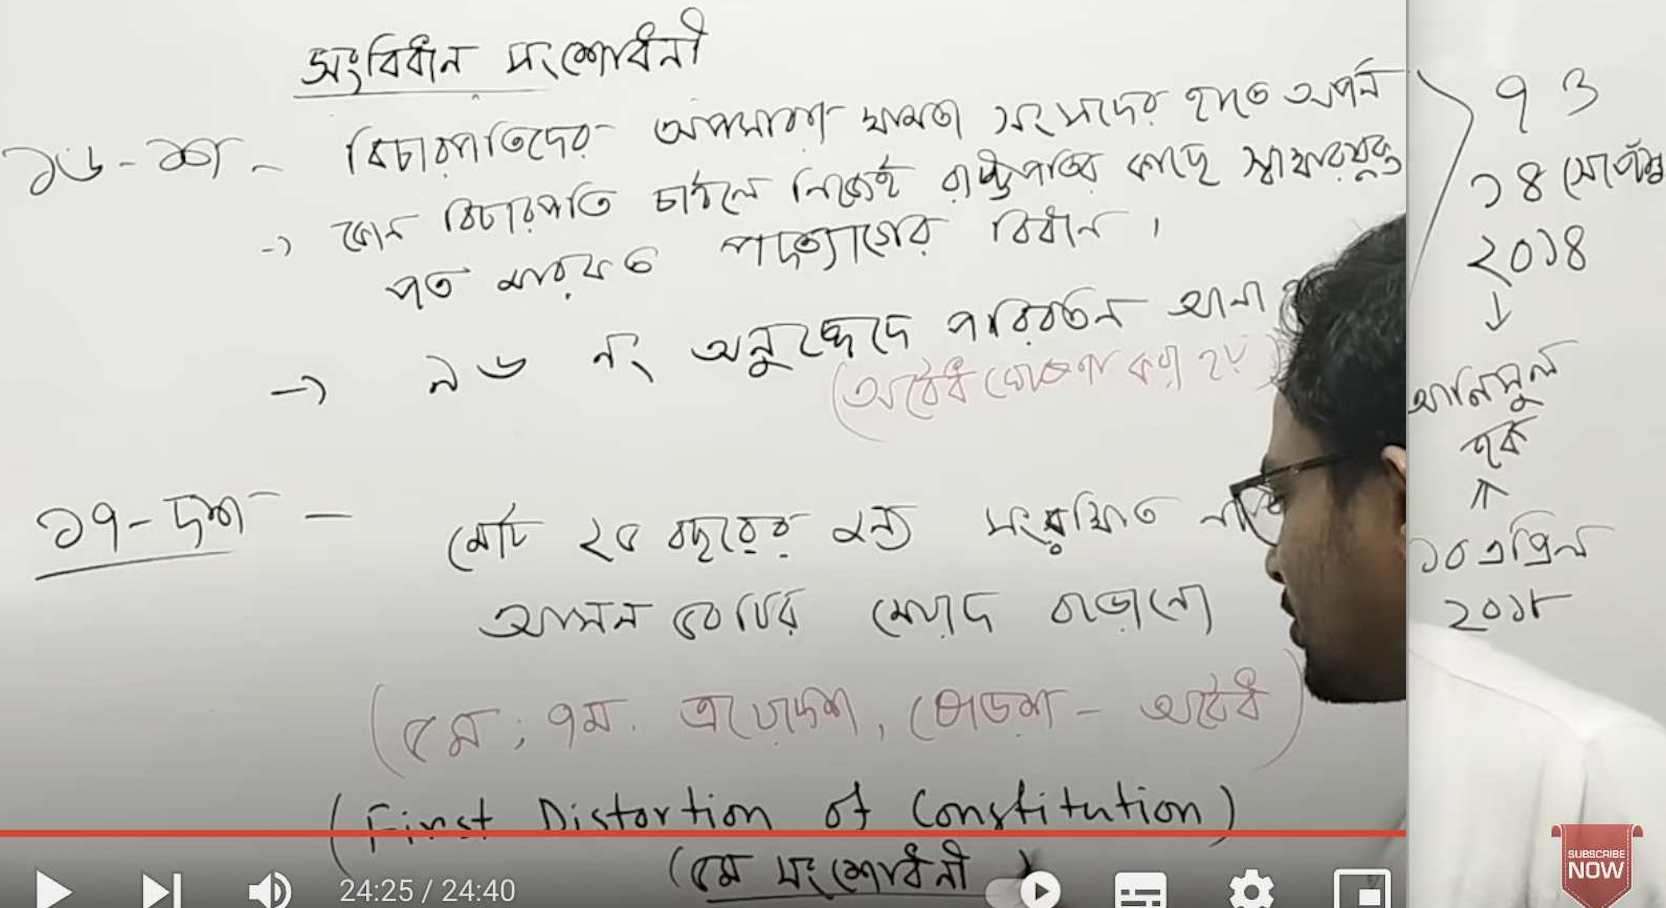 সংবিধান সংশোধনী
১৬-দশ - বিচারপতিদের অপসারণ ক্ষমতা সংসদের হাতে অর্পন
-> কোন বিচারপতি চাইলে নিজেই রাষ্ট্রপতির কাছে স্বাক্ষরযুক্ত
পত্র মারফত পদত্যাগের বিধান।
-> ৯৬ নং অনুচ্ছেদে পরিবর্তন আনা
(অবৈধ ঘোষণা করা হয়)
১৭-দশ - মোট ২৫ বছরের জন্য সংরক্ষিত
আসন ৫০টির মেয়াদ বাড়ানো
(৫ম, ৭ম, ত্রয়োদশ, ষোড়শ - অবৈধ)
(First Distortion of Constitution)
(৫ম সংশোধনী)
৭৩
১৪
২০১৪
↓
আনিসুল
হক
১০ এপ্রিল
২০১৮
24:25 / 24:40
SUBSCRIBE
NOW